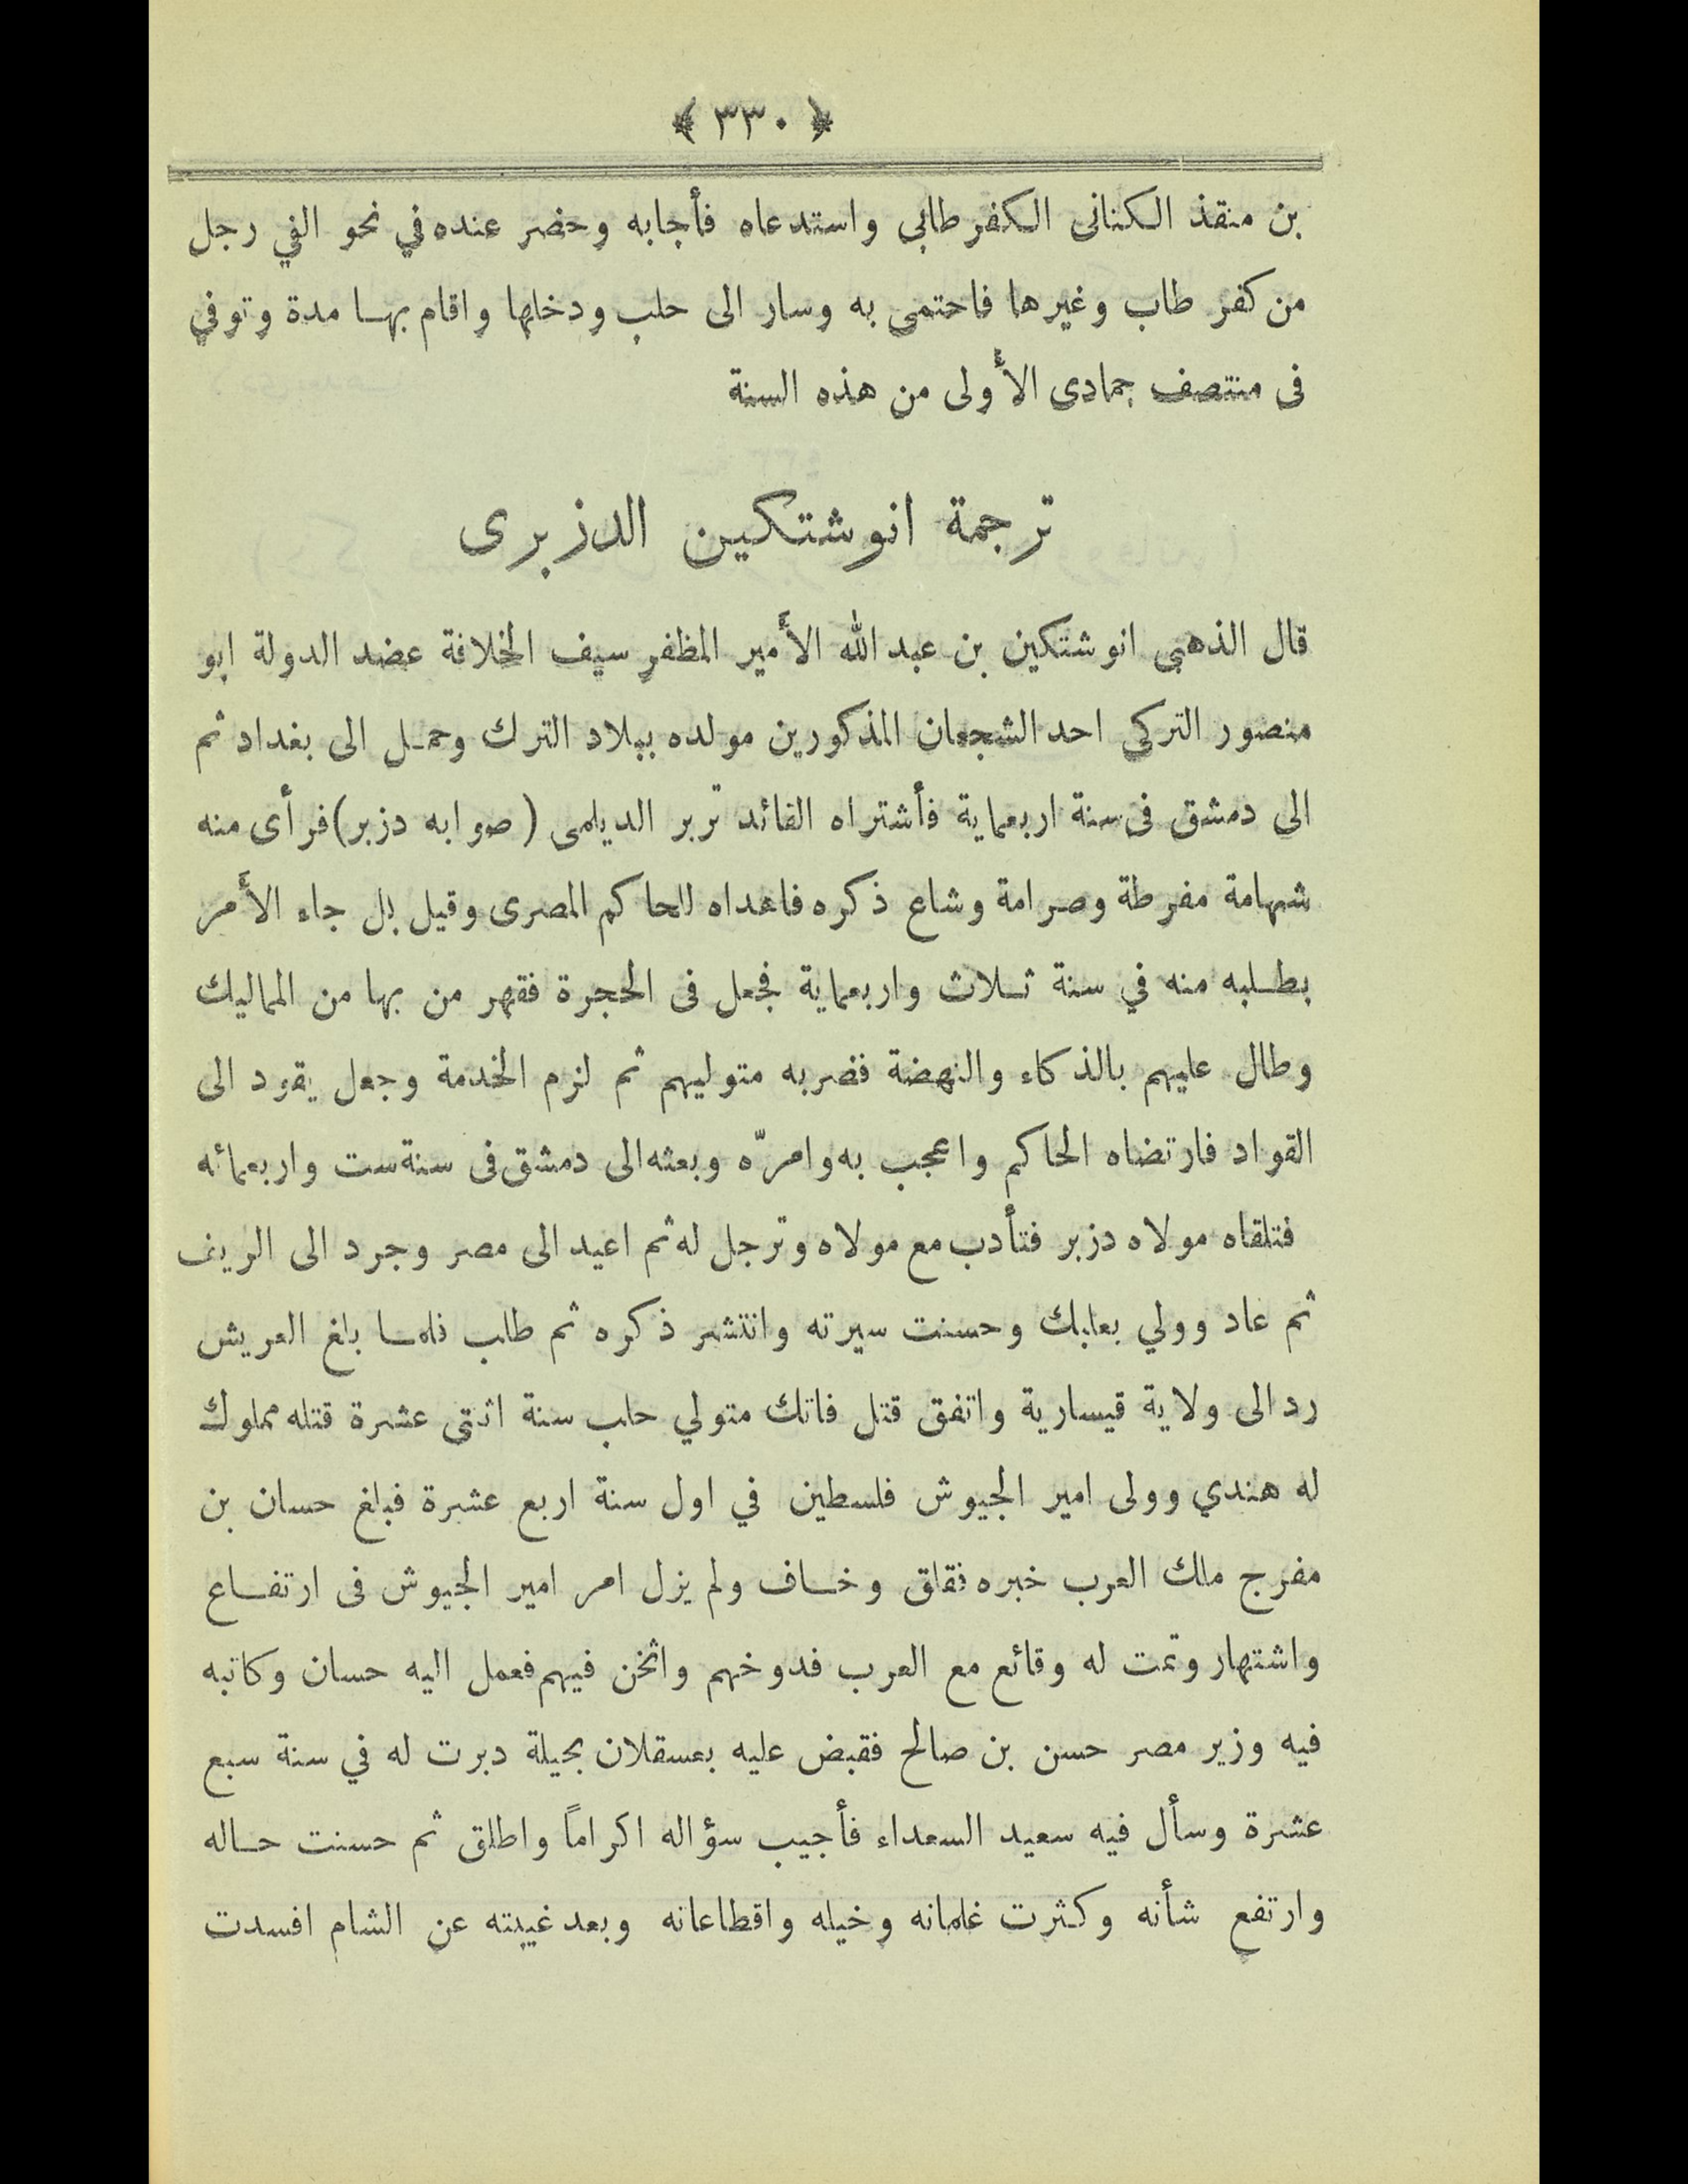 ﴿ ٣٣٠ ﴾
بن منقذ الكنانى الكفر طابى واستدعاه فأجابه وحضر عنده في نحو الفي رجل
من كفر طاب وغيرها فاحتمى به وسار الى حلب ودخلها واقام بهـا مدة وتوفي
فى منتصف جمادى الأولى من هذه السنة
ترجمة انوشتكين الدزبرى
قال الذهبى انوشتكين بن عبد الله الأمير المظفر سيف الخلافة عضد الدولة ابو
منصور التركى احد الشجعان المذكورين مولده ببلاد الترك وحمـل الى بغداد ثم
الى دمشق فى سنة اربعماية فأشتراه القائد تربر الديلمى (صوابه دزبر) فرأى منه
شهامة مفرطة وصرامة وشاع ذكره فاهداه للحاكم المصرى وقيل بل جاء الأمر
بطـلبه منه في سنة ثـلاث واربعماية فجعل فى الحجرة فقهر من بها من المماليك
وطال عليهم بالذكاء والنهضة فضربه متوليهم ثم لزم الخدمة وجعل يقود الى
القواد فارتضاه الحاكم واعجب به وامرّه وبعثه الى دمشق فى سنة ست واربعمائه
فتلقاه مولاه دزبر فتأدب مع مولاه وترجل له ثم اعيد الى مصر وجرد الى الريف
ثم عاد وولي بعلبك وحسنت سيرته وانتشر ذكره ثم طلب فلمـا بلغ العريش
رد الى ولاية قيسارية واتفق قتل فاتك متولي حلب سنة اثنتى عشرة قتله مملوك
له هندي وولى امير الجيوش فلسطين في اول سنة اربع عشرة فبلغ حسان بن
مفرج ملك العرب خبره فقلق وخـاف ولم يزل امر امير الجيوش فى ارتفـاع
واشتهار وتمت له وقائع مع العرب فدوخهم واثخن فيهم فعمل اليه حسان وكاتبه
فيه وزير مصر حسن بن صالح فقبض عليه بعسقلان بحيلة دبرت له في سنة سبع
عشرة وسأل فيه سعيد السعداء فأجيب سؤاله اكراماً واطلق ثم حسنت حـاله
وارتفع شأنه وكثرت غلمانه وخيله واقطاعاته وبعد غيبته عن الشام افسدت